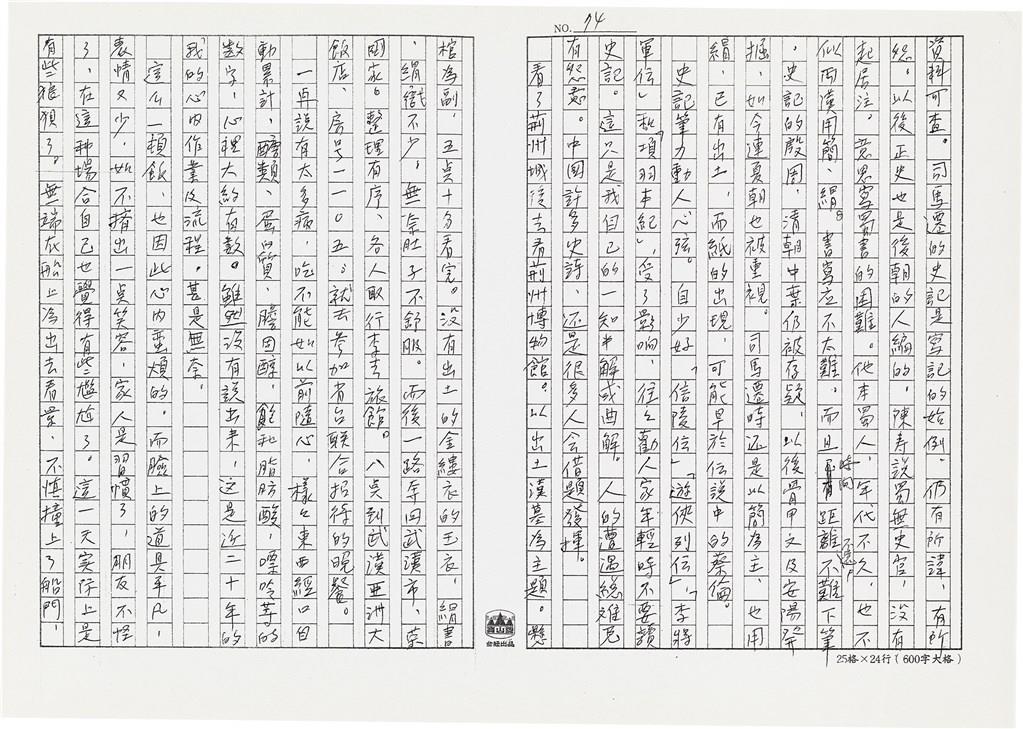 NO. 74
資料可查。司馬遷的史記是寫記的始例。仍有所諱,有所
怨。以後正史也是後朝的人編的。陳寿説蜀無史官,没有
起居注。意思寫蜀書的困難。他本蜀人,年代不久,也不
似両漢用簡、絹。書寫应不太難。而且時间有距離不遠,不難下筆
。史記的殷周,清朝中葉仍被存疑。以後骨甲文及安陽発
掘,如今連夏朝也被重視。司馬遷時还是以簡為主,也用
絹,已有出土,而紙的出現,可能早於伝説中的蔡倫。
史記筆力動人心弦。自少好「信陵伝」「遊俠列伝」「李將
軍伝」和「項羽本紀」,受了影响,往々勸人家年輕時不要讀
史記。這只是我自己的一知半解或曲解。人的遭遇総难免
有怨忿。中國許多史詩、还是很多人会借題發揮。
看了荊州城後去看荊州博物館。以出土漢墓為主題。懸
棺為副,五点十分看完。没有出土的金縷衣的玉衣,絹書
、絹畫不少,無奈肚子不舒服。而後一路奔回武漢市,蔡
國家。整理有序、各人取行李去旅館。八点到武漢亜洲大
飯店,房号一一〇五,就去參加省台联合招待的晚餐。
一再説有太多病,吃不能如以前隨心,樣々東西經口自
動累計,醣類、蛋白質、膽固醇、飽和脂肪酸,嘌呤等的
数字,心裡大約有数。雖然没有説出来,这是近二十年的
我的心内作業及流程。甚是無奈。
這么一頓飯,也因此心内蛮煩的。而臉上的道具平凡,
表情又少,如不擠出一点笑容,家人是習慣了,朋友不怪
了,在這种場合自己也覺得有些尷尬了。這一天実际上是
有些狼狽了。無端在船上冷出去看景,不慎撞上了船門,
25格×24行(600字大格)